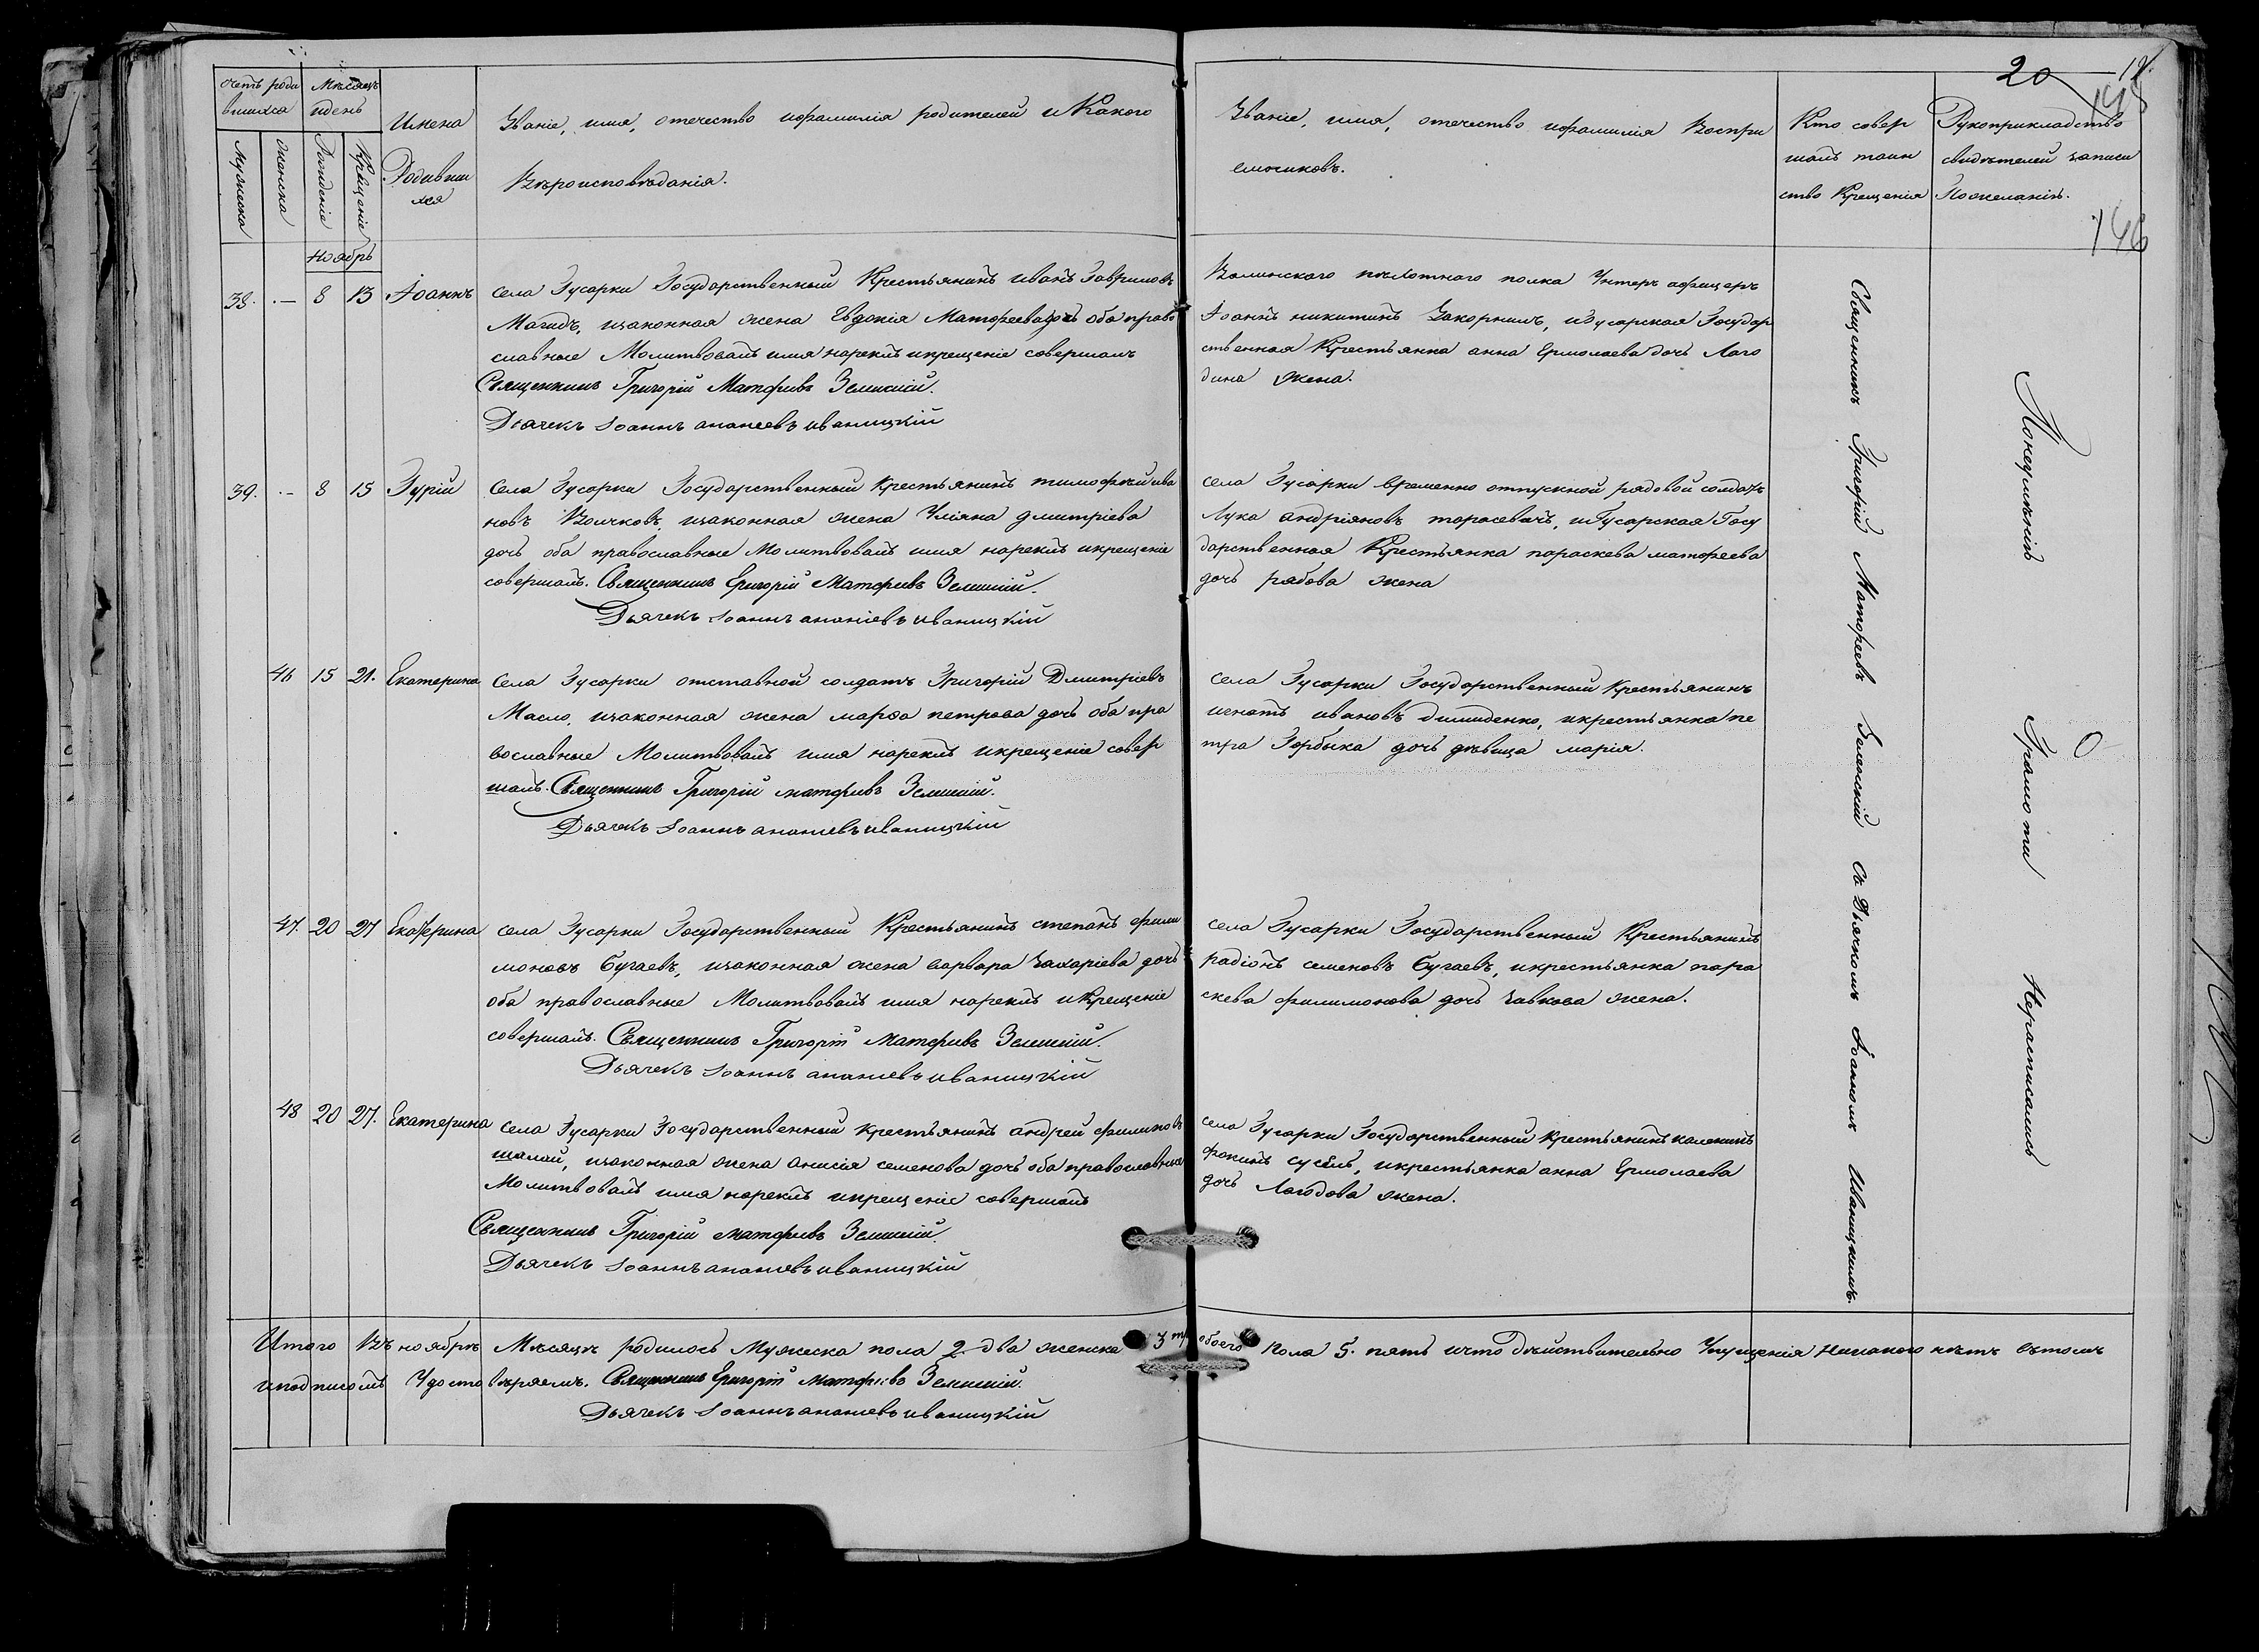 20
12.
148
146
Счетъ роди
вшихся
Мѣсяцъ
идень
Мужеска
Женска
Рожденіе
Крещеніе
Имена
Родивши
хся
Званіе, имя, отечество ифамилія родителей и Какого
Вѣроисповѣданія.
Званіе, имя, отечество ифамилія Воспри
емниковъ.
Кто совер
шалъ таин
ство Крещенія
Рукоприкладство
свидѣтелей записи
Пожеланію.
Ноябрь
38. - 8 13 Іоаннъ
села Гусарки Государственный Крестьянинъ иванъ Гавриловъ
Магидъ, изаконная жена Евдокія Матфеева дочь оба право
славные Молитвовалъ имя нарекъ икрещеніе совершалъ
Священникъ Григорій Матфіевъ Зелинскій.
Дьячекъ Іоаннъ ананіевъ иваницкій
Волынскаго пѣхотнаго полка Унтеръ афицеръ
Іоаннъ никитинъ Закорнилъ, иГусарская Государ
ственная Крестьянка анна Ермолаева дочь Лаго
дина жена.
39. - 8 15 Гурій
Села Гусарки Государственный крестьянинъ тимофей ива
новъ Волчковъ, изаконная жена Уліяна дмитріева
дочь оба православные Молитвовалъ имя нарекъ икрещеніе
совершалъ. Священникъ Григорій Матфіевъ Зелинскій.
Дьячекъ Іоаннъ ананіевъ иваницкій
села Гусарки временно отпускной рядовой солдатъ
Лука андріяновъ тарасевачъ, иГусарская Госу
дарственная Крестьянка параскева матфеева
дочь рябова жена
46 15 21. Екатерина
Села Гусарки отставной солдатъ Григорій Дмитріевъ
Масло, изаконная жена марѳа петрова дочь оба пра
вославные Молитвовалъ имя нарекъ икрещеніе совер
шалъ. Священникъ Григорій матфіевъ Зелинскій.
Дьячекъ Іоаннъ ананіевъ иваницкій
села Гусарки Государственный крестьянинъ
игнатъ ивановъ димиденко, икрестьянка пе
тра Горбыка дочь дѣвица марія.
47. 20 27 Екатерина
села Гусарки Государственный Крестьянинъ степанъ фили
моновъ Бугаевъ, изаконная жена варвара Захаріева дочь
оба православные Молитвовалъ имя нарекъ иКрещеніе
совершалъ. Священникъ Григорій Матфіевъ Зелинскій.
Дьячекъ Іоаннъ ананіевъ иваницкій
села Гусарки Государственный Крестьянинъ
радіонъ семеновъ Бугаевъ, икрестьянка пара
скева филимонова дочь Завкова жена.
48 20 27. Екатерина
Села Гусарки Государственный крестьянинъ андрей филиповъ
шалай, изаконная жена анисія семенова дочь оба православные
Молитвовалъ имя нарекъ икрещеніе совершалъ
Священникъ Григорій матфіевъ Зелинскій.
Дьячекъ Іоаннъ ананіевъ иваницкій
села Гусарки Государственный крестьянинъ каленикъ
фокинъ сусѣлъ, икрестьянка анна Ермолаева
дочь Лагодова жена.
Священникъ Григорій Матфеевъ Зелинскій съ Дьячкомъ Іоанномъ Иваницкимъ.
Понеумѣнію Грамоти Нерасписались
Итого Въ ноябрѣ Мѣсяцѣ родилось Мужеска пола 2. два женска 3 три обоего Пола 5. пять ичто Дѣйствительно Упущенія Никакого нѣтъ вътомъ
иподписомъ Удостовѣряемъ. Священникъ Григорій матфіевъ Зелинскій.
Дьячекъ Іоаннъ ананіевъ иваницкій